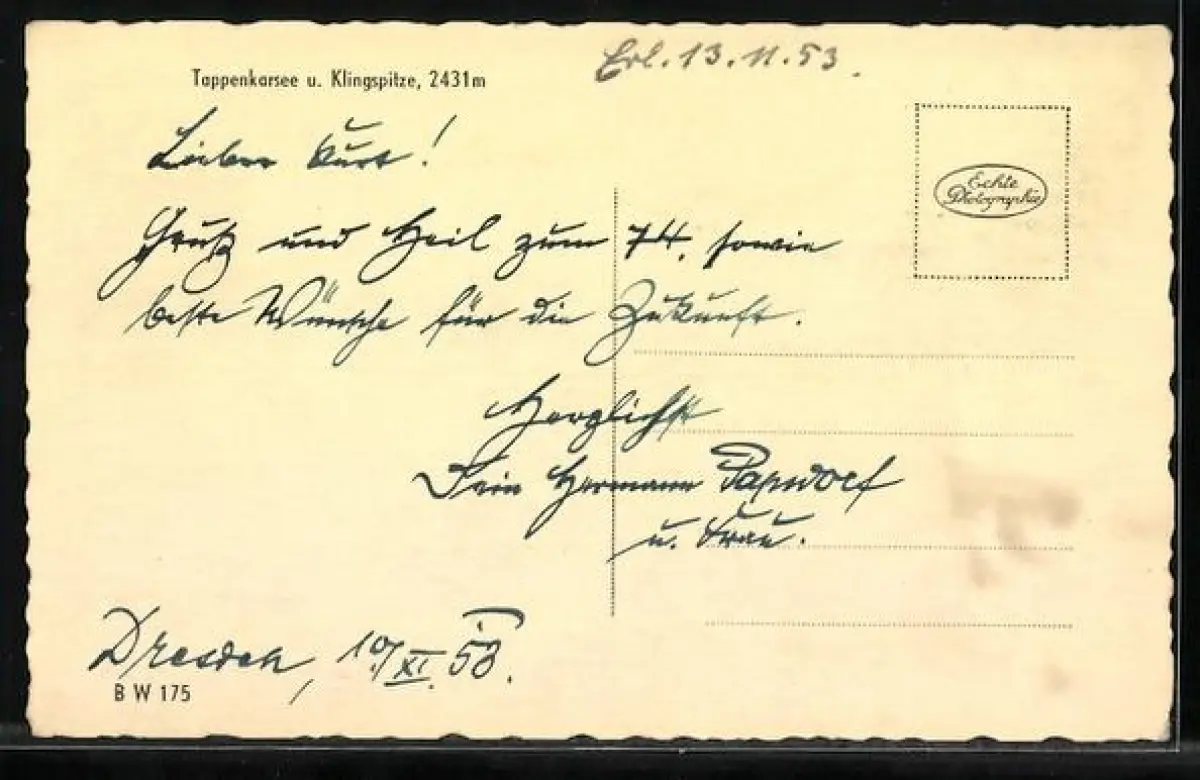 Tappenkarsee u. Klingspitze, 2431m
Erl. 13.11.53.
Lieber Kurt!
Gruß und Heil zum 74. sowie
beste Wünsche für die Zukunft.
Herzlichst
Dein Hermann Papsdorf
u. Frau.
Dresden, 10/XI. 53.
B W 175
Echte
Photographie